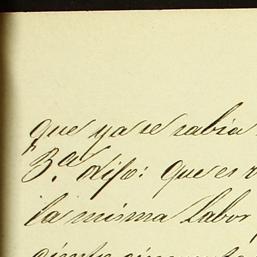 que ya se sabia
3ª. dijo: Que es
la misma Labor